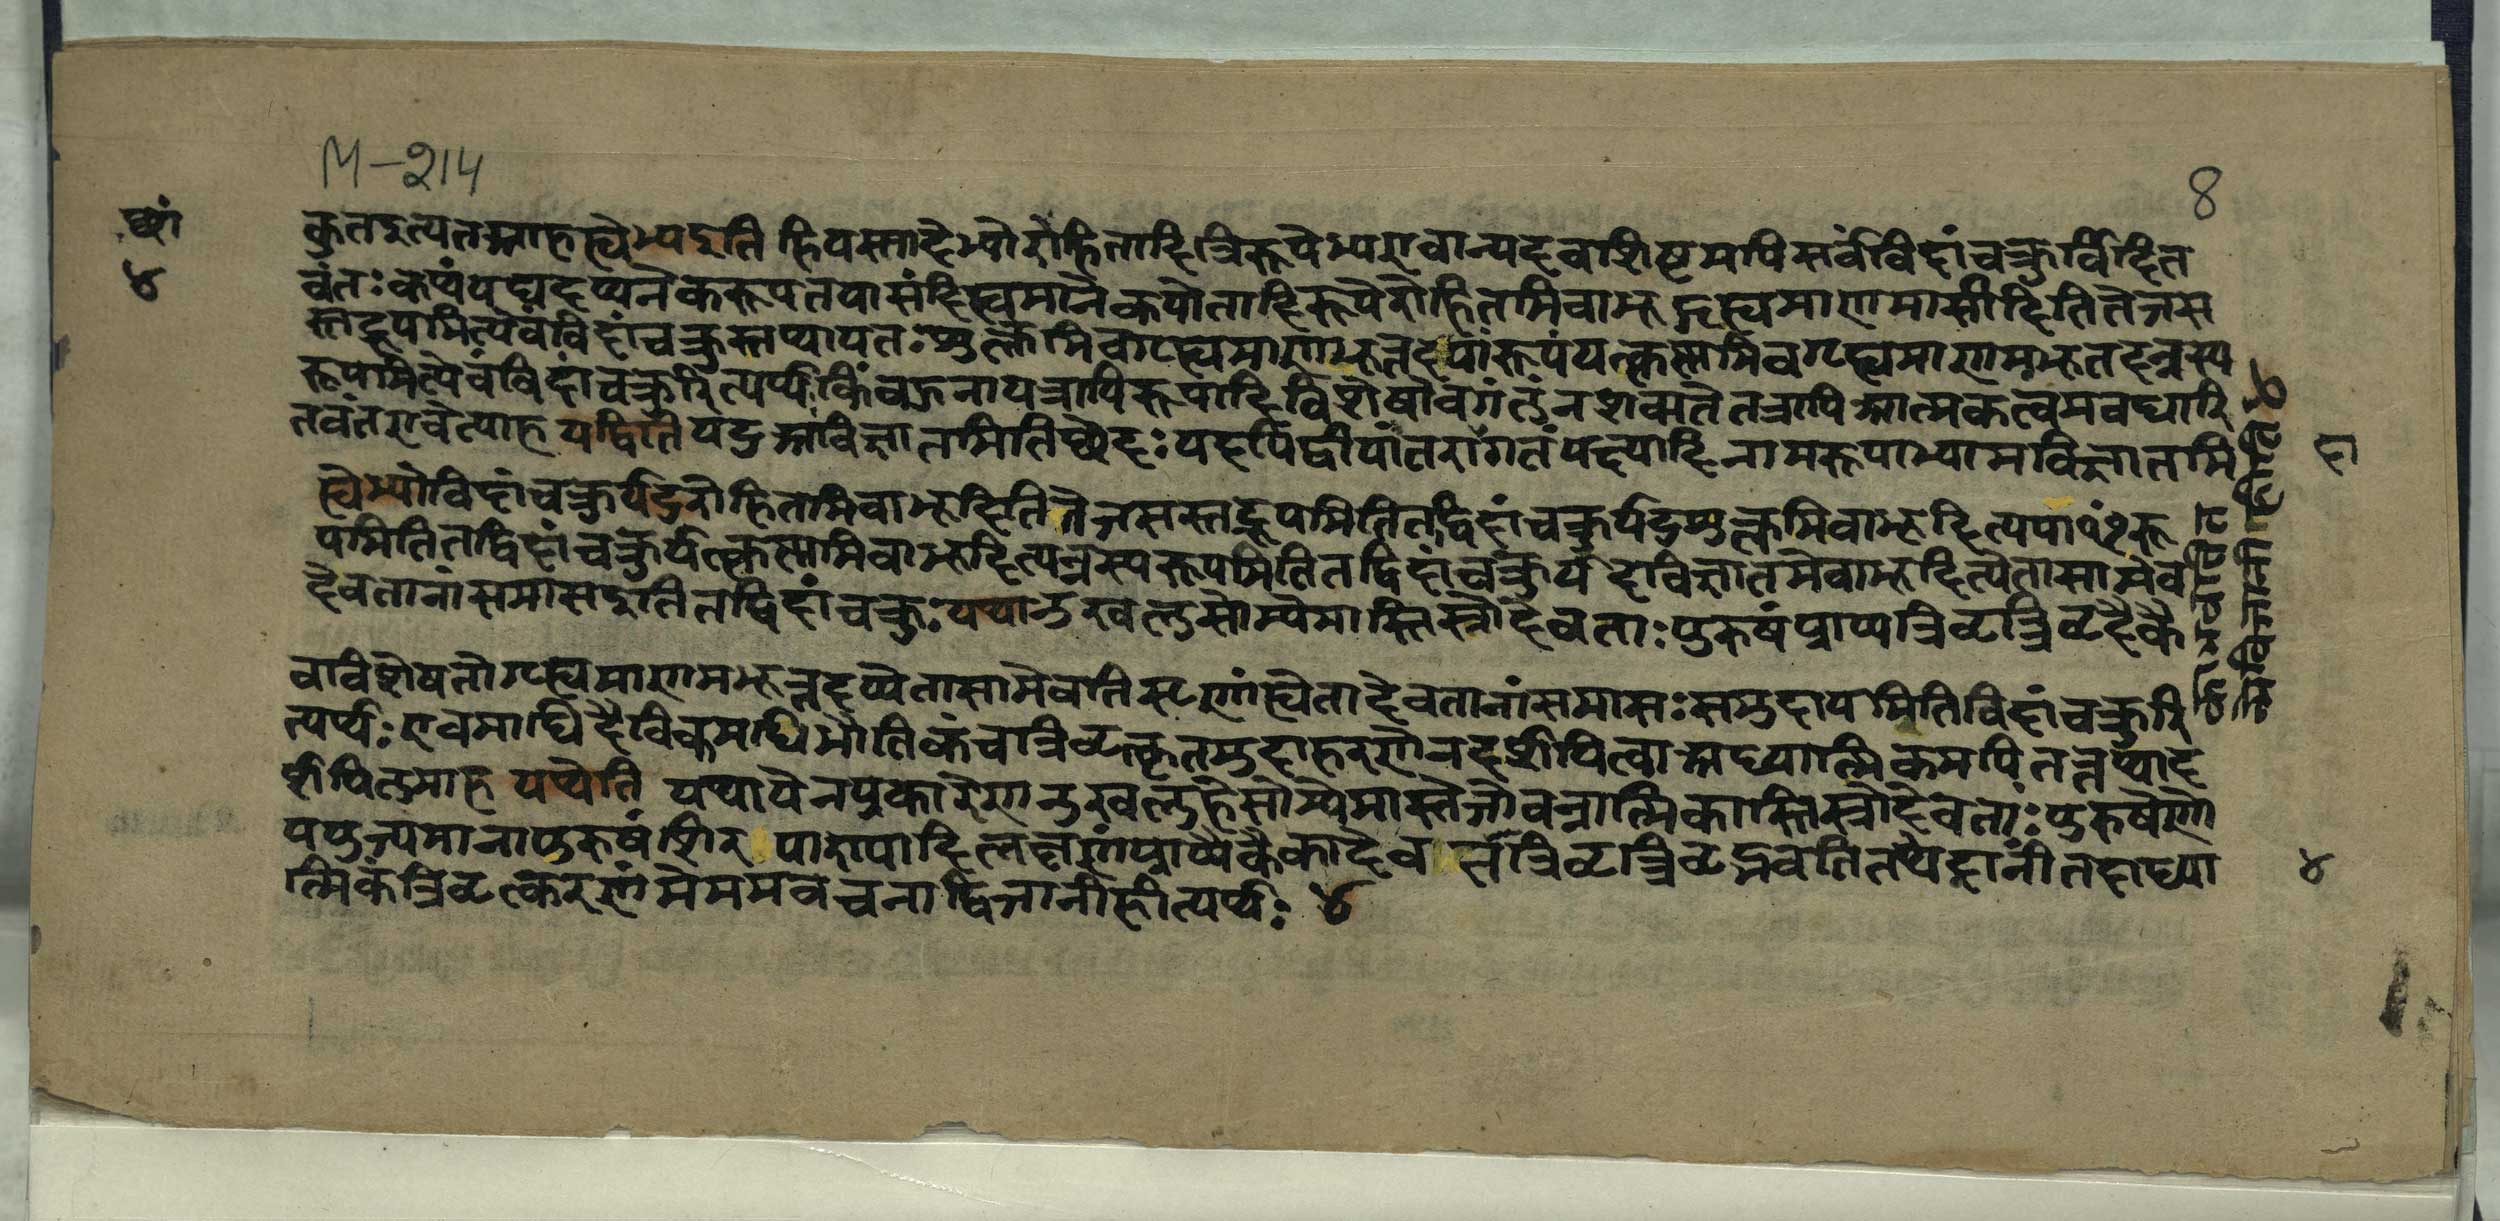 M-214
8
छां
४
कुतइत्यतआहह्येभ्यइति हियस्मादेभ्योरोहितादित्रिरूपेभ्यएवान्यदवशिष्टमपिसर्वंविदांचक्रुर्विदित
वंतः कथंयद्यदप्यनेकरूपतयासंदिह्यमानेकपोतादिरूपेरोहितमिवाभूद्गृह्यमाणमासीदितितेजस
स्तद्रूपमित्येवंविदांचक्रुस्तथायतः शुक्लमिवगृह्यमाणमभूत्तदपांरूपंयत्कृष्णमिवगृह्यमाणमभूतदन्नस्य
रूपमित्येवंविदांचक्रुरित्यर्थः किंबहुनायत्रापिरूपादिविशेषोवगंतुंनशक्यतेतत्रापिआत्मकत्वमवधारि
तवंतएवेत्याह यद्वितियदुअविज्ञातमितिछेदः यदपिद्वीपांतरागतंपक्ष्यादिनामरूपाभ्यामविज्ञातमि
दा
ह्येभ्योविदांचक्रुर्यदुरोहितमिवाभूदितितेजसस्तद्रूपमितितद्विदांचक्रुर्यदुशुक्लमिवाभूदित्यपाꣳरू
पमितितद्विदांचक्रुर्यत्कृष्णमिवाभूदित्यन्नस्यरूपमितितद्विदांचक्रुर्य देविज्ञातमेवाभूदित्येतासामेव
देवतानांसमासइतितद्विदांचक्रुः यथानुखलुसोम्येमास्तिस्त्रोदेवताः पुरुषंप्राप्यत्रिवृत्त्रिवृदेकै
वाविशेषतोगृह्यमाणमभूत्तदप्येतासामेवतिसृणांह्येतादेवतानांसमासः समुदायमितिविदांचक्रुरि
त्यर्थः एवमाधिदैविकमधिभौतिकंचत्रिवृत्कृतमुदाहरणेनदर्शयित्वाअध्यात्मिकमपितत्तथाद
र्शयितुमाह यथेति यथायेनप्रकारेणनुखलुहेसोम्येमास्तेजोबन्नात्मिकास्तिस्त्रोदेवताः पुरुषेणो
पयुज्यमानापुरुषंशिरः पाण्यादिलक्षणंप्राप्यैकैकादेव त्रिवृत्त्रिवृद्भवतितथेदानींतदाध्या
४
त्मिकंत्रिवृत्करणंमेममवचनाद्विजानीहीत्यर्थः ४